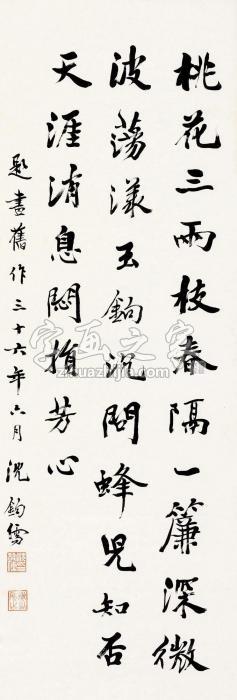 桃花三兩枝春隔一簾深微
波蕩漾玉鉤沈問蜂兒知否
天涯消息悶損芳心
題畫舊作三十六年六月沈鈞儒
字画之家